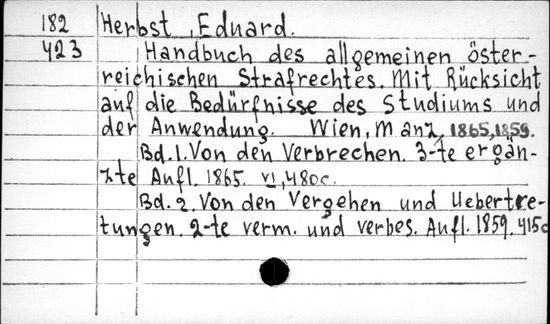 182 Herbst, Eduard.
423 Handbuch des allgemeinen öster-
reichischen Strafrechtes. Mit Rücksicht
auf die Bedürfnisse des Studiums und
der Anwendung. Wien, Manz, 1865,1859.
Bd.1. Von den Verbrechen. 3-te ergän-
zte Aufl. 1865. VI,480c.
Bd.2. Von den Vergehen und Uebertre-
tungen. 2-te verm. und verbes. Aufl. 1859. 415c